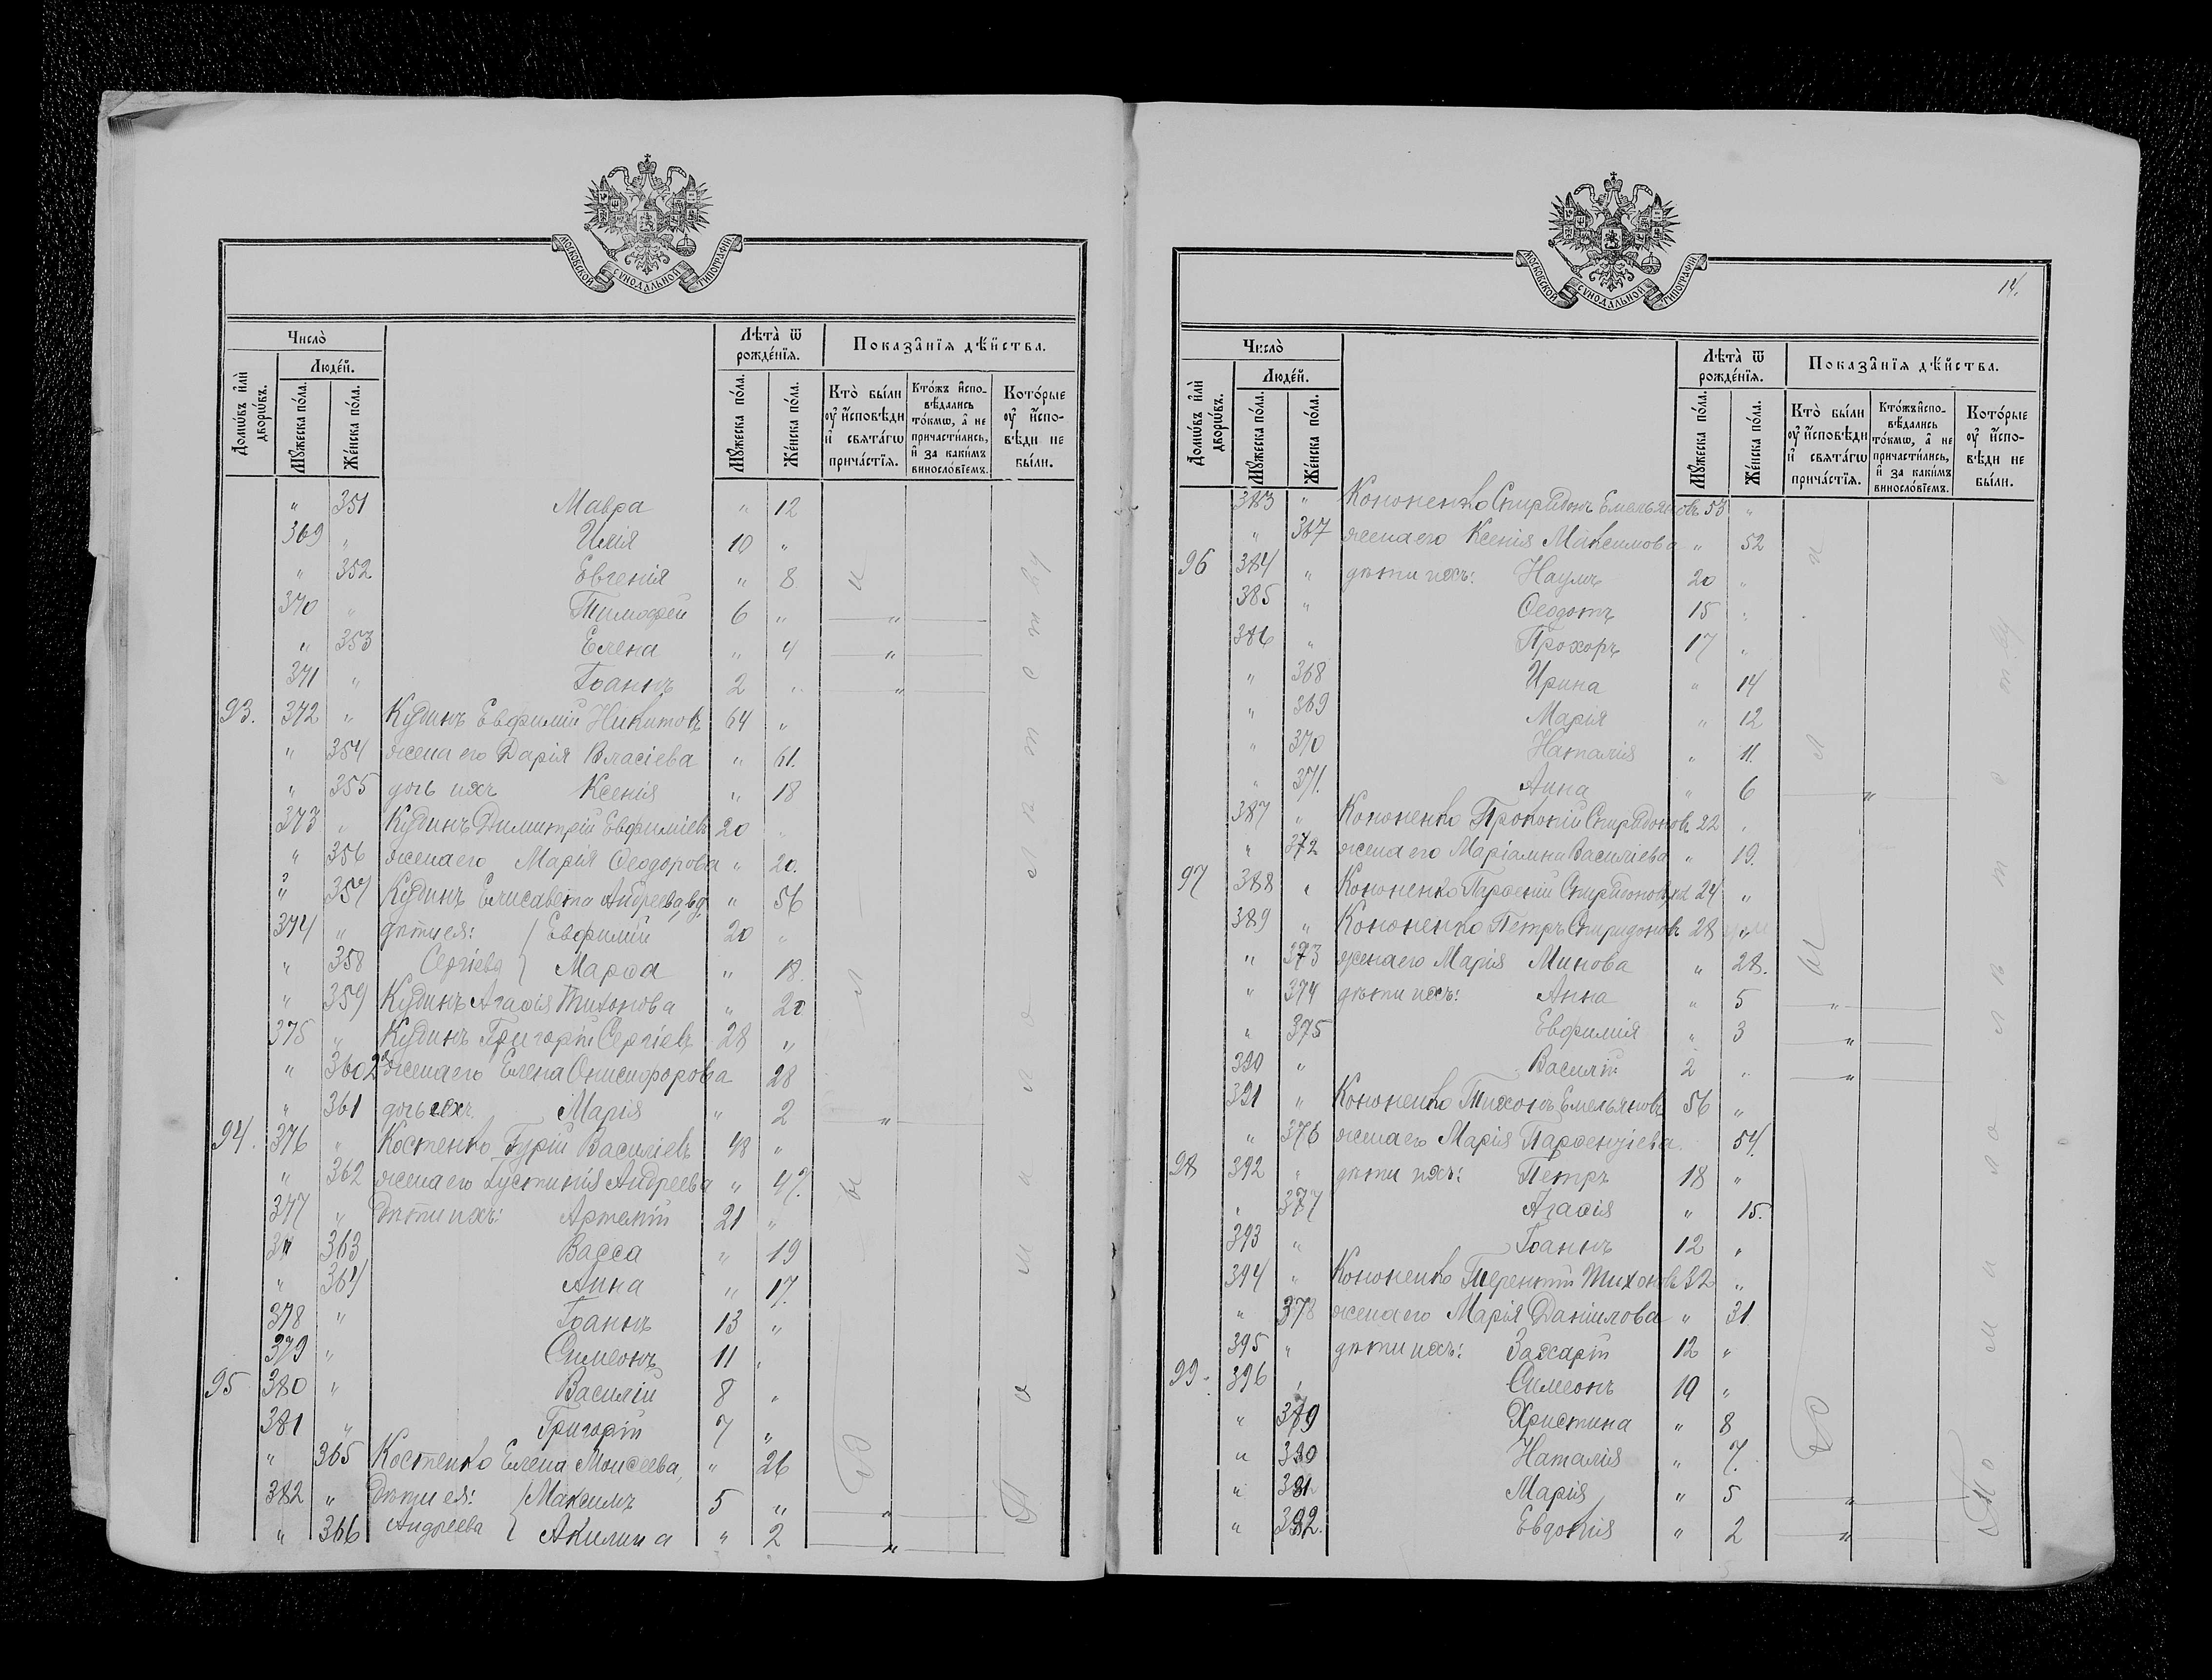 МОСКОВСКОЙ СѴНОДАЛЬНОЙ ТИПОГРАФІИ
Число̀
Лѣта̀ ѿ рожде́нїѧ.
Показа̑нїѧ дѣ́йства.
Домѡ́въ и҆лѝ дворѡ́въ.
Люде́й.
Мꙋ́жеска по́ла.
Же́нска по́ла.
Мꙋ́жеска по́ла.
Же́нска по́ла.
Кто̀ бы́ли оу҆ и҆́сповѣди и҆ свѧта́гѡ прича́стїѧ.
Кто́жъ и҆спо-вѣ́дались то́кмѡ, а҆ не причасти́лись, и҆ за каки́мъ виносло́вїемъ.
Кото́рые оу҆ и҆спо-вѣди не бы́ли.
" 351 Мавра " 12
369 " Илія 10 "
" 352 Евгенія " 8
370 " Тимофей 6 "
" 353 Елена " 4 "
371 " Іоаннъ 2 " "
93. 372 " Кудинъ Евфимій Никитовъ 64 "
" 354 жена его Дарія Власіева " 61.
" 355 дочь ихъ Ксенія " 18
373 " Кудинъ Димитрій Евфиміевъ 20 "
" 356 жена его Марія Ѳеодорова " 20.
" 357 Кудинъ Елисавета Андреева, вд. " 56
374 " дѣти ея: Евфимій 20 "
" 358 Сергіева Марѳа " 18.
" 359 Кудинъ Агаѳія Тихонова " 20
375 " Кудинъ Григорій Сергіевъ 28 "
" 360 жена его Елена Онисифорова 28
" 361 дочь ихъ Марія " 2 "
94. 376 " Костенко Гурій Василіевъ 48 "
" 362 жена его Іустинія Андреева " 47.
377 " Дѣти ихъ: Артемій 21 "
" 363 Васса " 19
" 364 Анна " 17.
378 " Іоаннъ 13 "
379 " Симеонъ 11 "
95 380 " Василій 8 "
381 " Григорій 7 "
" 365 Костенко Елена Моисеева, " 26
382 " Дѣти ея: Максимъ 5 " "
" 366 Андреева Акилина " 2 "
14.
МОСКОВСКОЙ СѴНОДАЛЬНОЙ ТИПОГРАФІИ
Число̀
Лѣта̀ ѿ рожде́нїѧ.
Показа̑нїѧ дѣ́йства.
Домѡ́въ и҆лѝ дворѡ́въ.
Люде́й.
Мꙋ́жеска по́ла.
Же́нска по́ла.
Мꙋ́жеска по́ла.
Же́нска по́ла.
Кто̀ бы́ли оу҆ и҆́сповѣди и҆ свѧта́гѡ прича́стїѧ.
Кто́жъ и҆спо-вѣ́дались то́кмѡ, а҆ не причасти́лись, и҆ за каки́мъ виносло́вїемъ.
Кото́рые оу҆ и҆спо-вѣди не бы́ли.
383 " Кононенко Спиридонъ Емельяновъ 53 "
" 367 жена его Ксенія Максимова " 52
96 384 " дѣти ихъ: Наумъ 20 "
385 " Ѳеодотъ 15 "
386 " Прохоръ 17 "
" 368 Ирина " 14
" 369 Марія " 12
" 370 Наталія " 11.
" 371. Анна " 6 "
387 " Кононенко Прокопій Спиридоновъ 22 "
" 372 жена его Маріамна Василіева " 19.
97 388 " Кононенко Парѳеній Спиридоновъ 24 "
389 " Кононенко Петръ Спиридоновъ 28 "
" 373 жена его Марія Минова " 28.
" 374 дѣти ихъ: Анна " 5 "
" 375 Евфимія " 3 "
390 " Василій 2 " "
391 " Кононенко Тихонъ Емельяновъ 56 "
" 376 жена его Марія Парѳентіева 54.
98 392 " дѣти ихъ: Петръ 18 "
" 377 Агаѳія " 15.
393 " Іоаннъ 12 "
394 " Кононенко Терентій Тихоновъ 32 "
" 378 жена его Марія Даніилова " 31
395 " дѣти ихъ: Захарій 12 "
99. 396 " Симеонъ 10 "
" 379 Христина " 8
" 380 Наталія " 7.
" 381 Марія " 5 "
" 382. Евдокія " 2 "